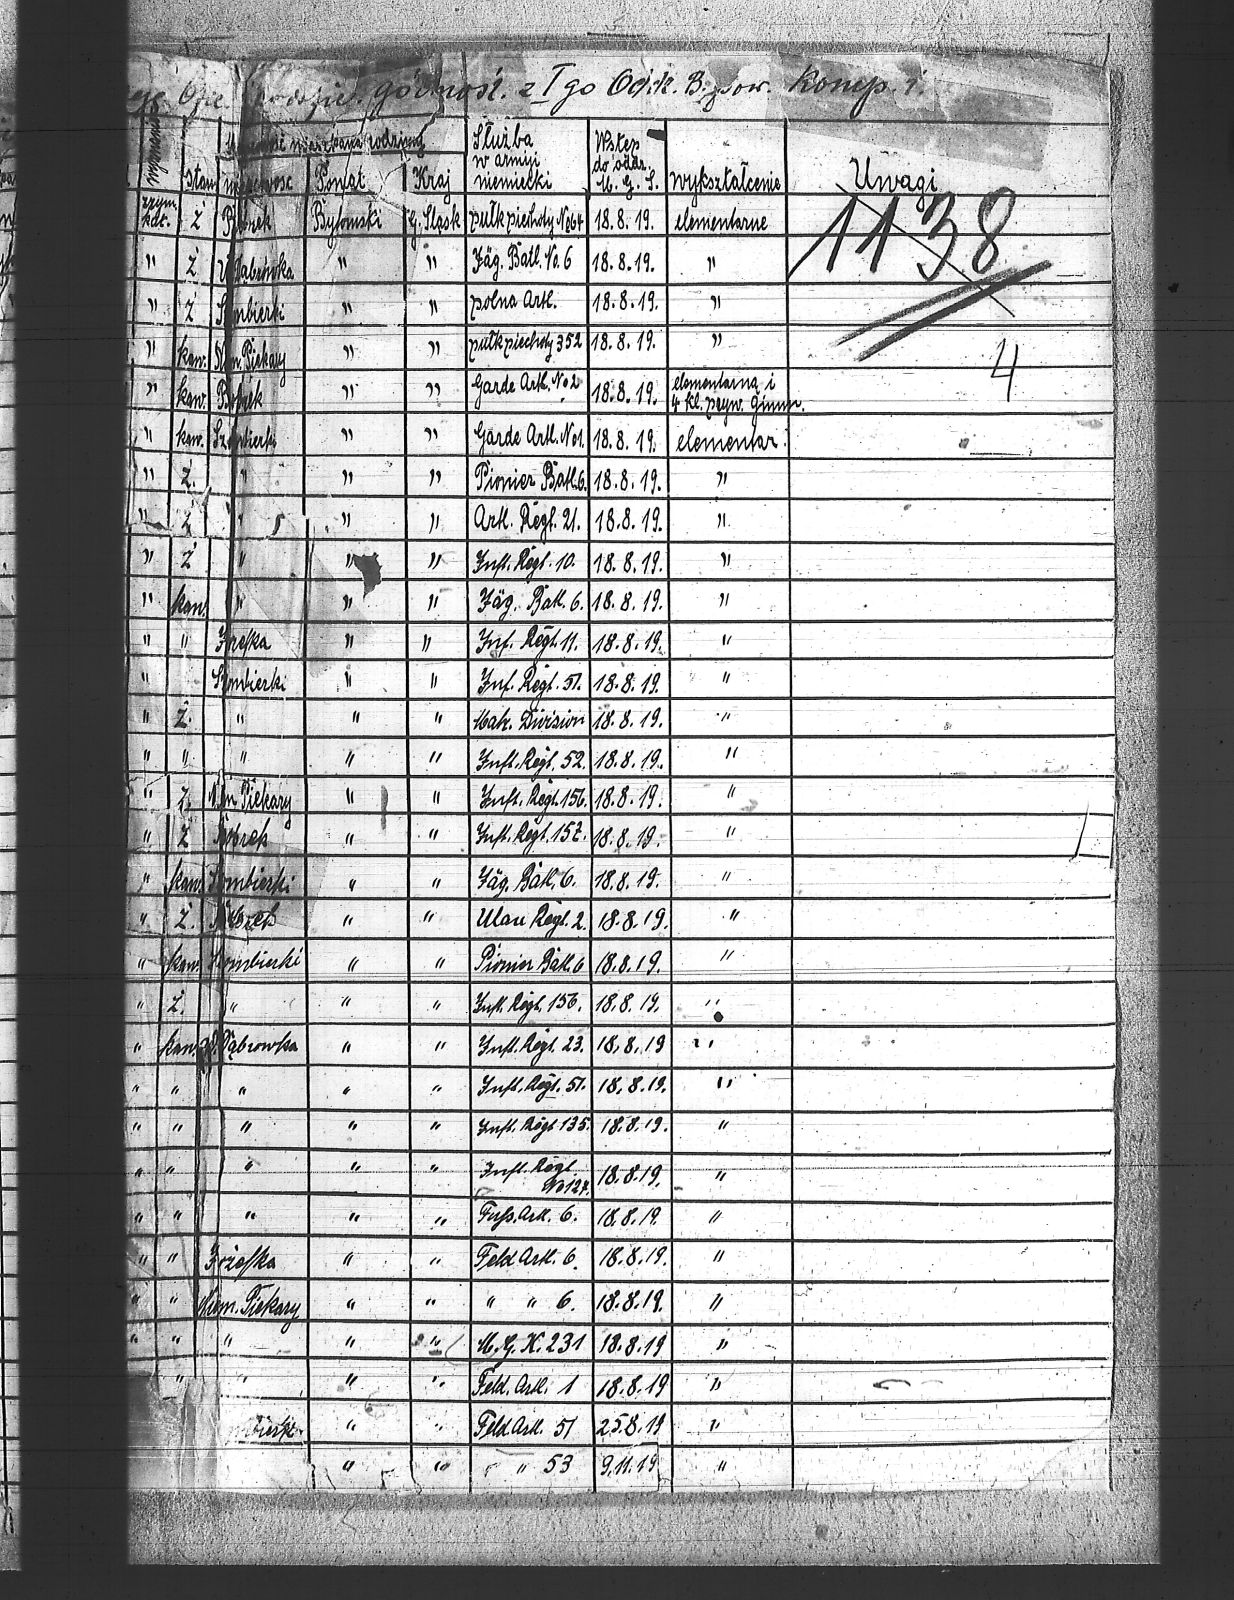 górność. z I go Od.k. B. sow. Komp. 1.
mieszkania rodziny
Służba w armji niemiecki
Wstęp do oddz. M. G. S.
stan Powiat Kraj wykształcenie Uwagi
rzym. kat. ż Bytomski G. Śląsk pułk piechoty No 64 18.8.19. elementarne
1138
" ż Dąbrówka " " Jäg. Batl. No. 6 18.8.19. "
" ż " " polna Artl. 18.8.19. "
" kaw. Piekary " " pułk piechoty 352 18.8.19. "
4
" kaw. " " Garde Artl. No 2 18.8.19. elementarną i 4 kl. pryw. Gimn.
" kaw. " " Garde Artl. No 1. 18.8.19. elementar.
" ż. " " " Pionier Batl. 6. 18.8.19. "
" ż " " " Artl. Regt. 21. 18.8.19. "
" ż " " " Inft. Regt. 10. 18.8.19. "
" kaw. " " " Jäg. Batl. 6. 18.8.19. "
" " " " Inf. Regt. 11. 18.8.19. "
" Szombierki " " Inf. Regt. 51. 18.8.19. "
" ż. " " " Mat. Division 18.8.19. "
" " " " " Inft. Regt. 52. 18.8.19. "
" ż. Piekary " " Inft. Regt. 156. 18.8.19. "
" ż " " Inft. Regt. 157. 18.8.19. "
" kaw. " " Jäg. Batl. 6. 18.8.19. "
" ż. " " Ulan Regt. 2. 18.8.19. "
" kaw. " " Pionier Batl. 6 18.8.19. "
" ż. " " " Inft. Regt. 156. 18.8.19. "
" kaw. Dąbrowka " " Inft. Regt. 23. 18.8.19 "
" " " " " Inft. Regt. 51. 18.8.19. "
" " " " " Inft. Regt 135. 18.8.19. "
" " " " " Inft. Regt No 127. 18.8.19. "
" " " " " Fuss. Art. 6. 18.8.19. "
" " Józefka " " Feld Artl. 6. 18.8.19. "
" " Niem. Piekary " " " " 6. 18.8.19. "
" " " " " M. G. K. 231 18.8.19 "
" " " " Feld. Artl. 1 18.8.19 "
" " Feld Artl. 51 25.8.19 "
" " " " 53 9.11.19 "